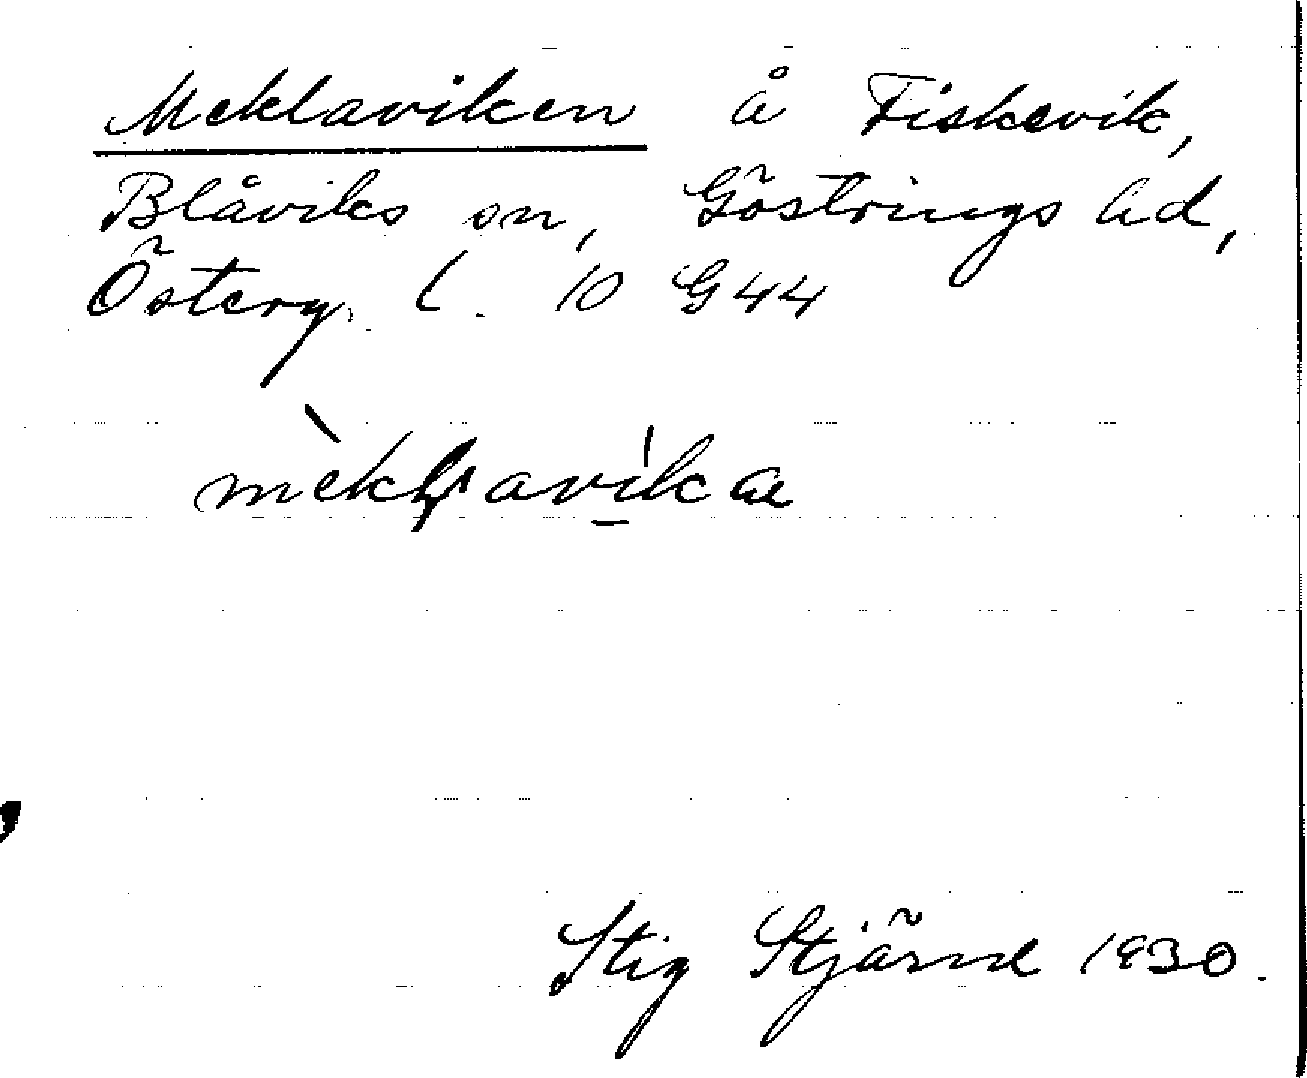 Meklaviken å Fiskevik,
Blåviks sn, Göstrings hd,
Österg. l. 10 G 44
mèklavika
Stig Stjärne 1930.